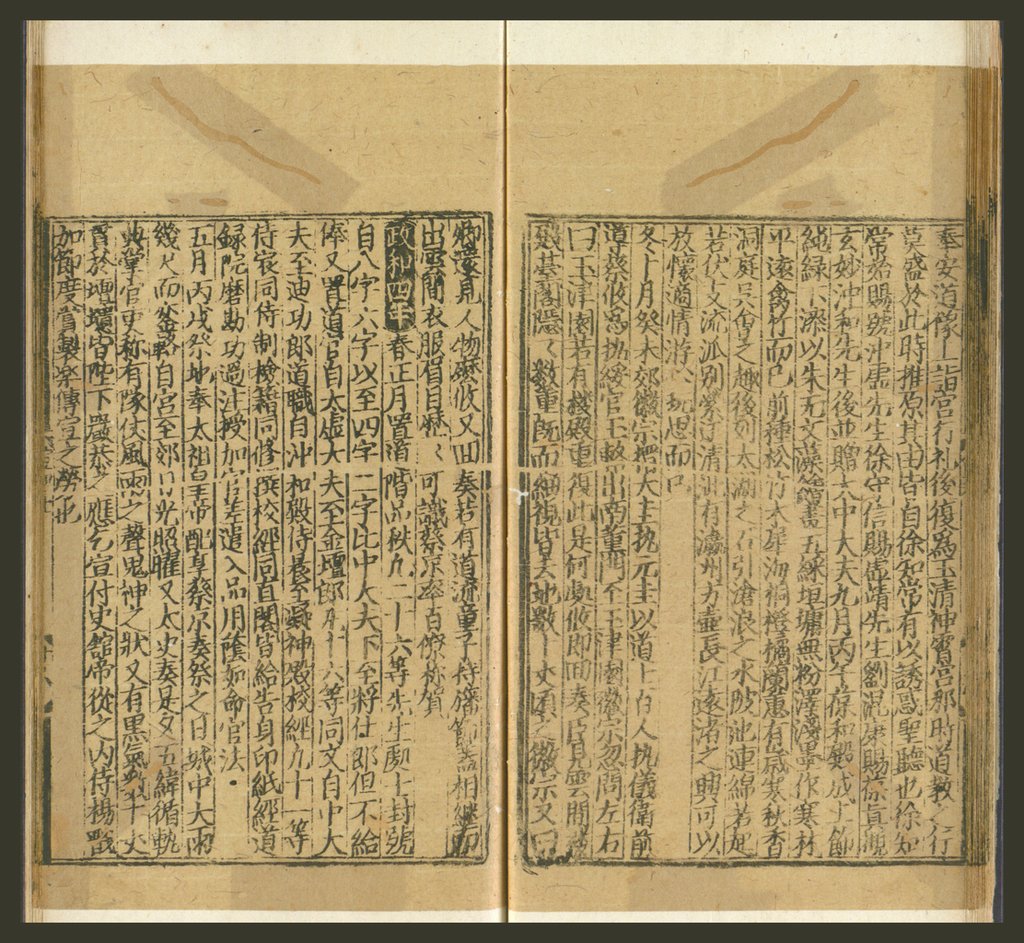 奉安道像上詣宮行礼後復爲玉清神霄宮那時道教之行
莫盛於此時推原其由皆自徐知常有以誘惑聖聽也徐知
常始賜號沖虛先生徐守信賜虛靖先生劉混康賜葆真觀
玄妙沖和先生後並贈太中大夫九月丙午葆和殿成上飾
純綠下漆以朱无文藻繪畫五綵垣墉無粉澤淺墨作寒林
平遠禽竹而已前種松竹木犀海桐橙橘蘭蕙有歳寒秋香
洞庭吳會之趣後列太湖之石引滄浪之水陂池連綿若起
若伏支流派別縈紆清泚有瀛州方壷長江遠渚之興可以
放懷適情游心玩思而已
冬十月癸未郊徽宗搢大圭執元圭以道士百人執儀衛前
導蔡攸爲執綏官玉輅出南薰門至玉津園徽宗忽問左右
曰玉津園若有樓殿重復此是何處攸即回奏臣見雲間
殿臺閣隱〻數重既而細視皆去地數十丈頃之徽宗又曰
卿還見人物麽攸又回奏若有道流童子持旛節盖相継而
出雲間衣服眉目歴〻可識蔡京率百僚称賀
政和四年春正月置道階品秩凡二十六等先生處士封號
自八字六字以至四字二字比中大夫下至將仕郎但不給
俸又置道官自太虛大夫至金壇郎凡十六等同文自中大
夫至迪功郎道職自沖和殿侍晨至凝神殿校經凡十一等
侍宸同待制檢籍同修撰校經同直閣皆給告身印紙經道
録院磨勘功過注授加官差遣入品用蔭如命官法
五月丙戌祭地奉太祖皇帝配享蔡京奏祭之日城中大雨
幾尺而鑾輅自宮至郊日光照曜又太史奏是夕五緯循軌
典掌官吏称有隊仗風雨之聲鬼神之狀又有黒氣數十丈
貫於壇壝皆陛下嚴恭之應乞宣付史館帝從之内侍楊戩
加節度嘗製樂傳宣之勞也